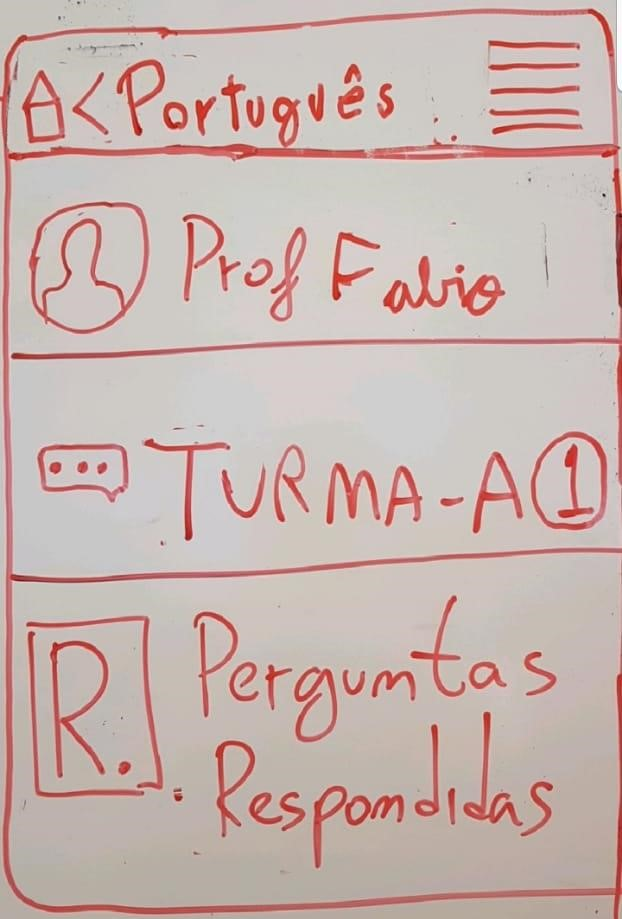 Português
Prof Fabio
TURMA-A 1
R. Perguntas
Respondidas